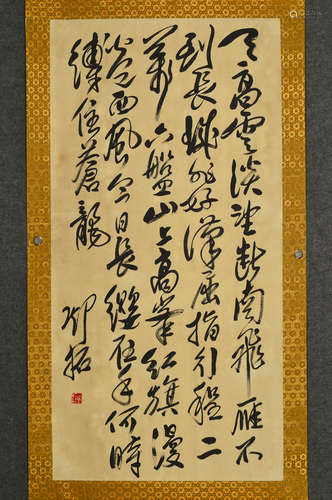 天高雲淡望斷南飛雁不
到長城非好漢屈指行程二
萬六盤山上高峯紅旗漫
卷西風今日長纓在手何時
縛住蒼龍
鄧拓